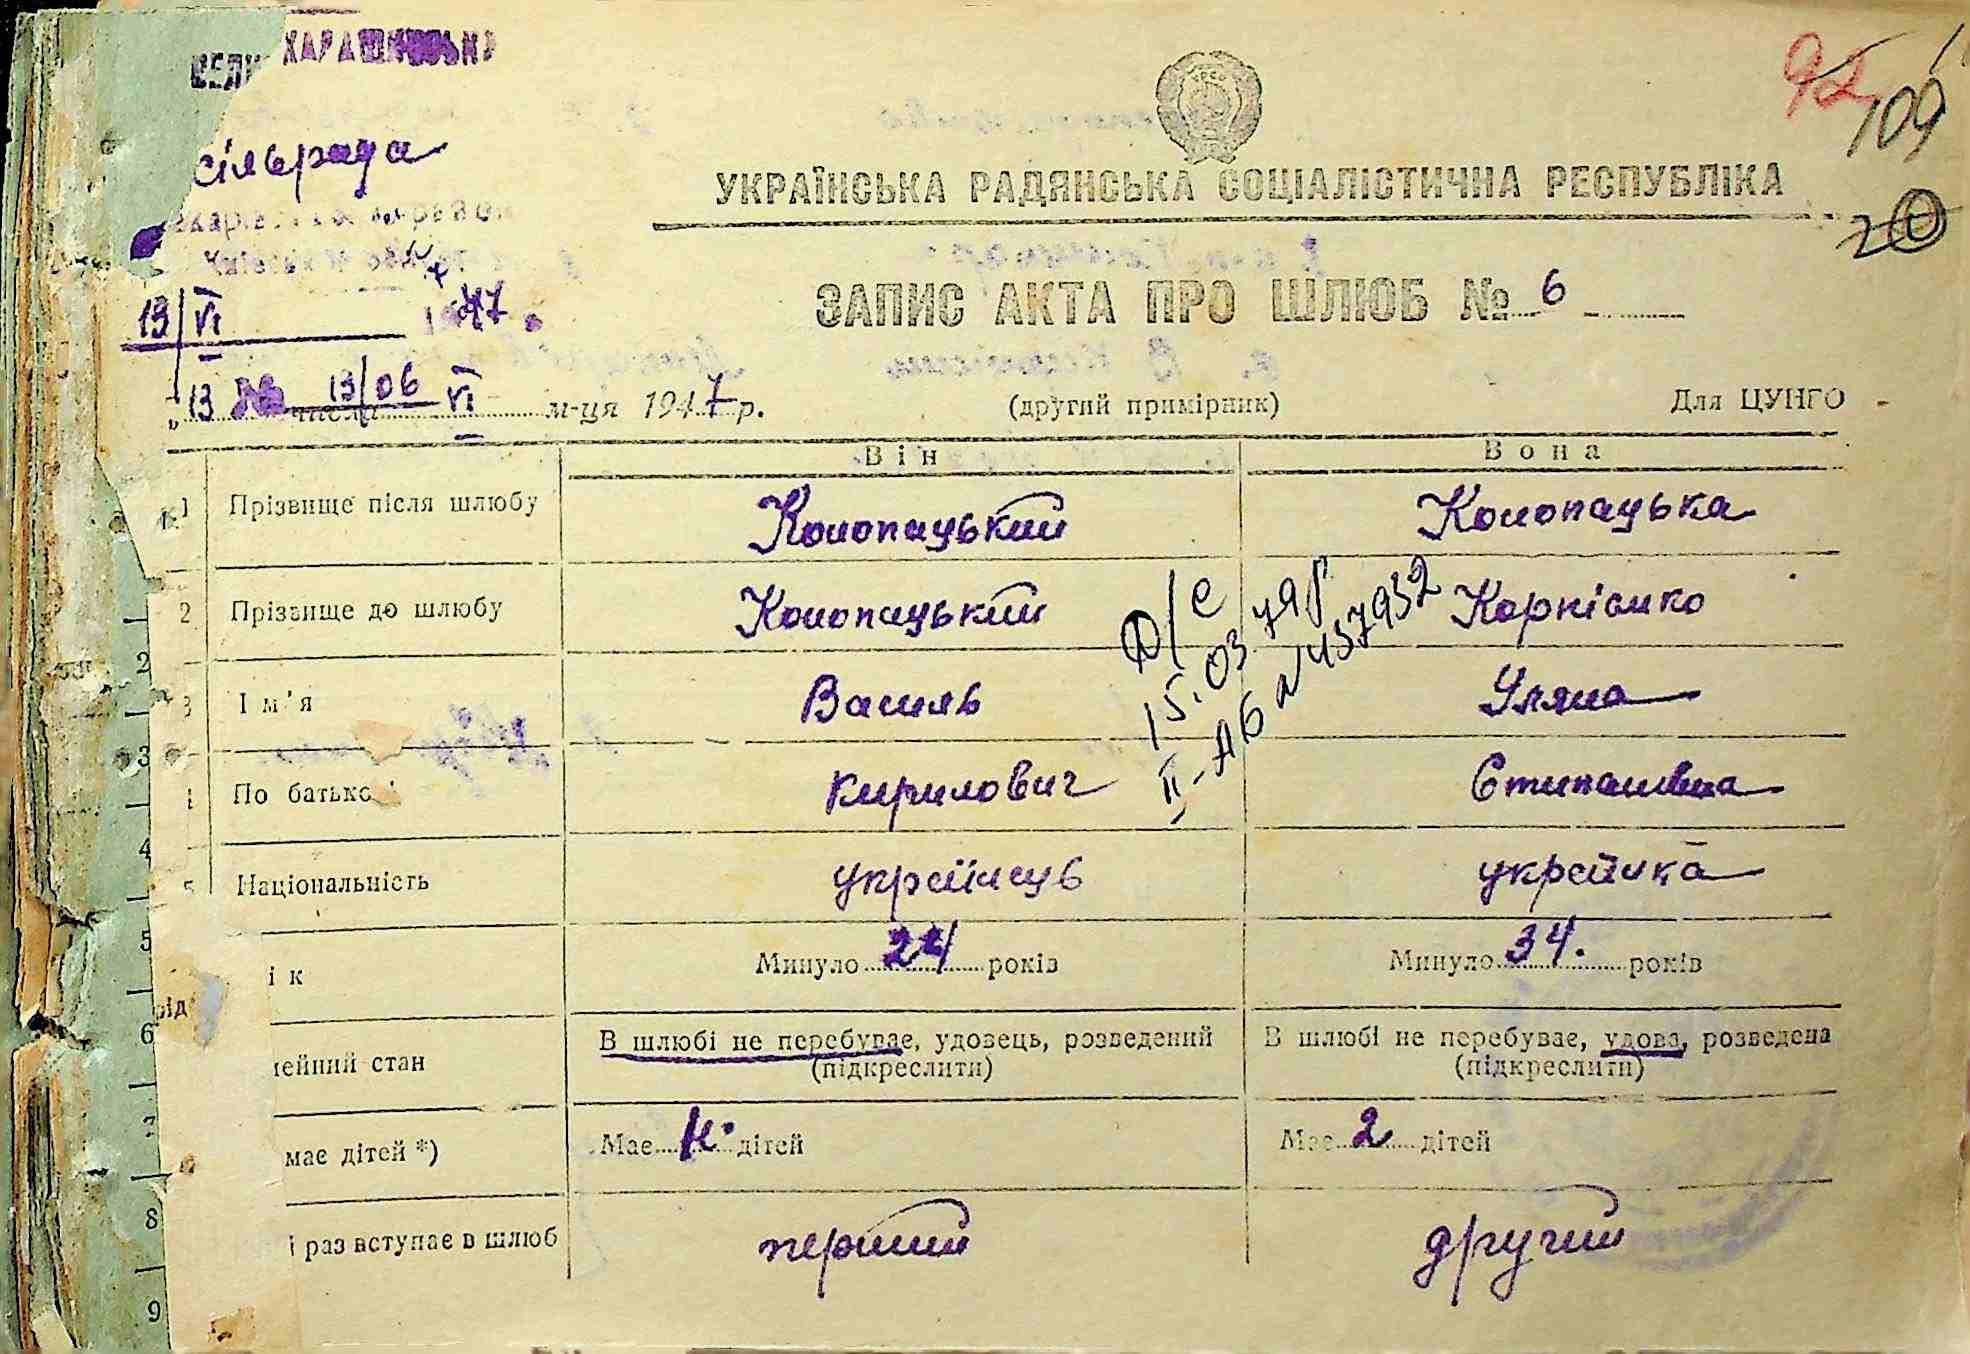 ХАРАШИВСЬКА
сільрада
92
109
20
УКРАЇНСЬКА РАДЯНСЬКА СОЦІАЛІСТИЧНА РЕСПУБЛІКА
ЗАПИС АКТА ПРО ШЛЮБ № 6
13/VI 1947
„13 13/06 VI м-ця 1947 р.
(другий примірник)
Для ЦУНГО
Він
Вона
1 Прізвище після шлюбу Конопацький Конопацька
2 Прізвище до шлюбу Конопацький Корнієнко
3 Ім'я Василь Уляна
По батькові Кирилович Степанівна
5 Національність українець українка
ік Минуло 24 років Минуло 34. років
мейний стан В шлюбі не перебуває, удовець, розведений (підкреслити) В шлюбі не перебуває, удова, розведена (підкреслити)
має дітей *) Має н. дітей Має 2 дітей
і раз вступає в шлюб перший другий
15.03 79р
II-АБ №457932
2
3
4
5
6
8
9